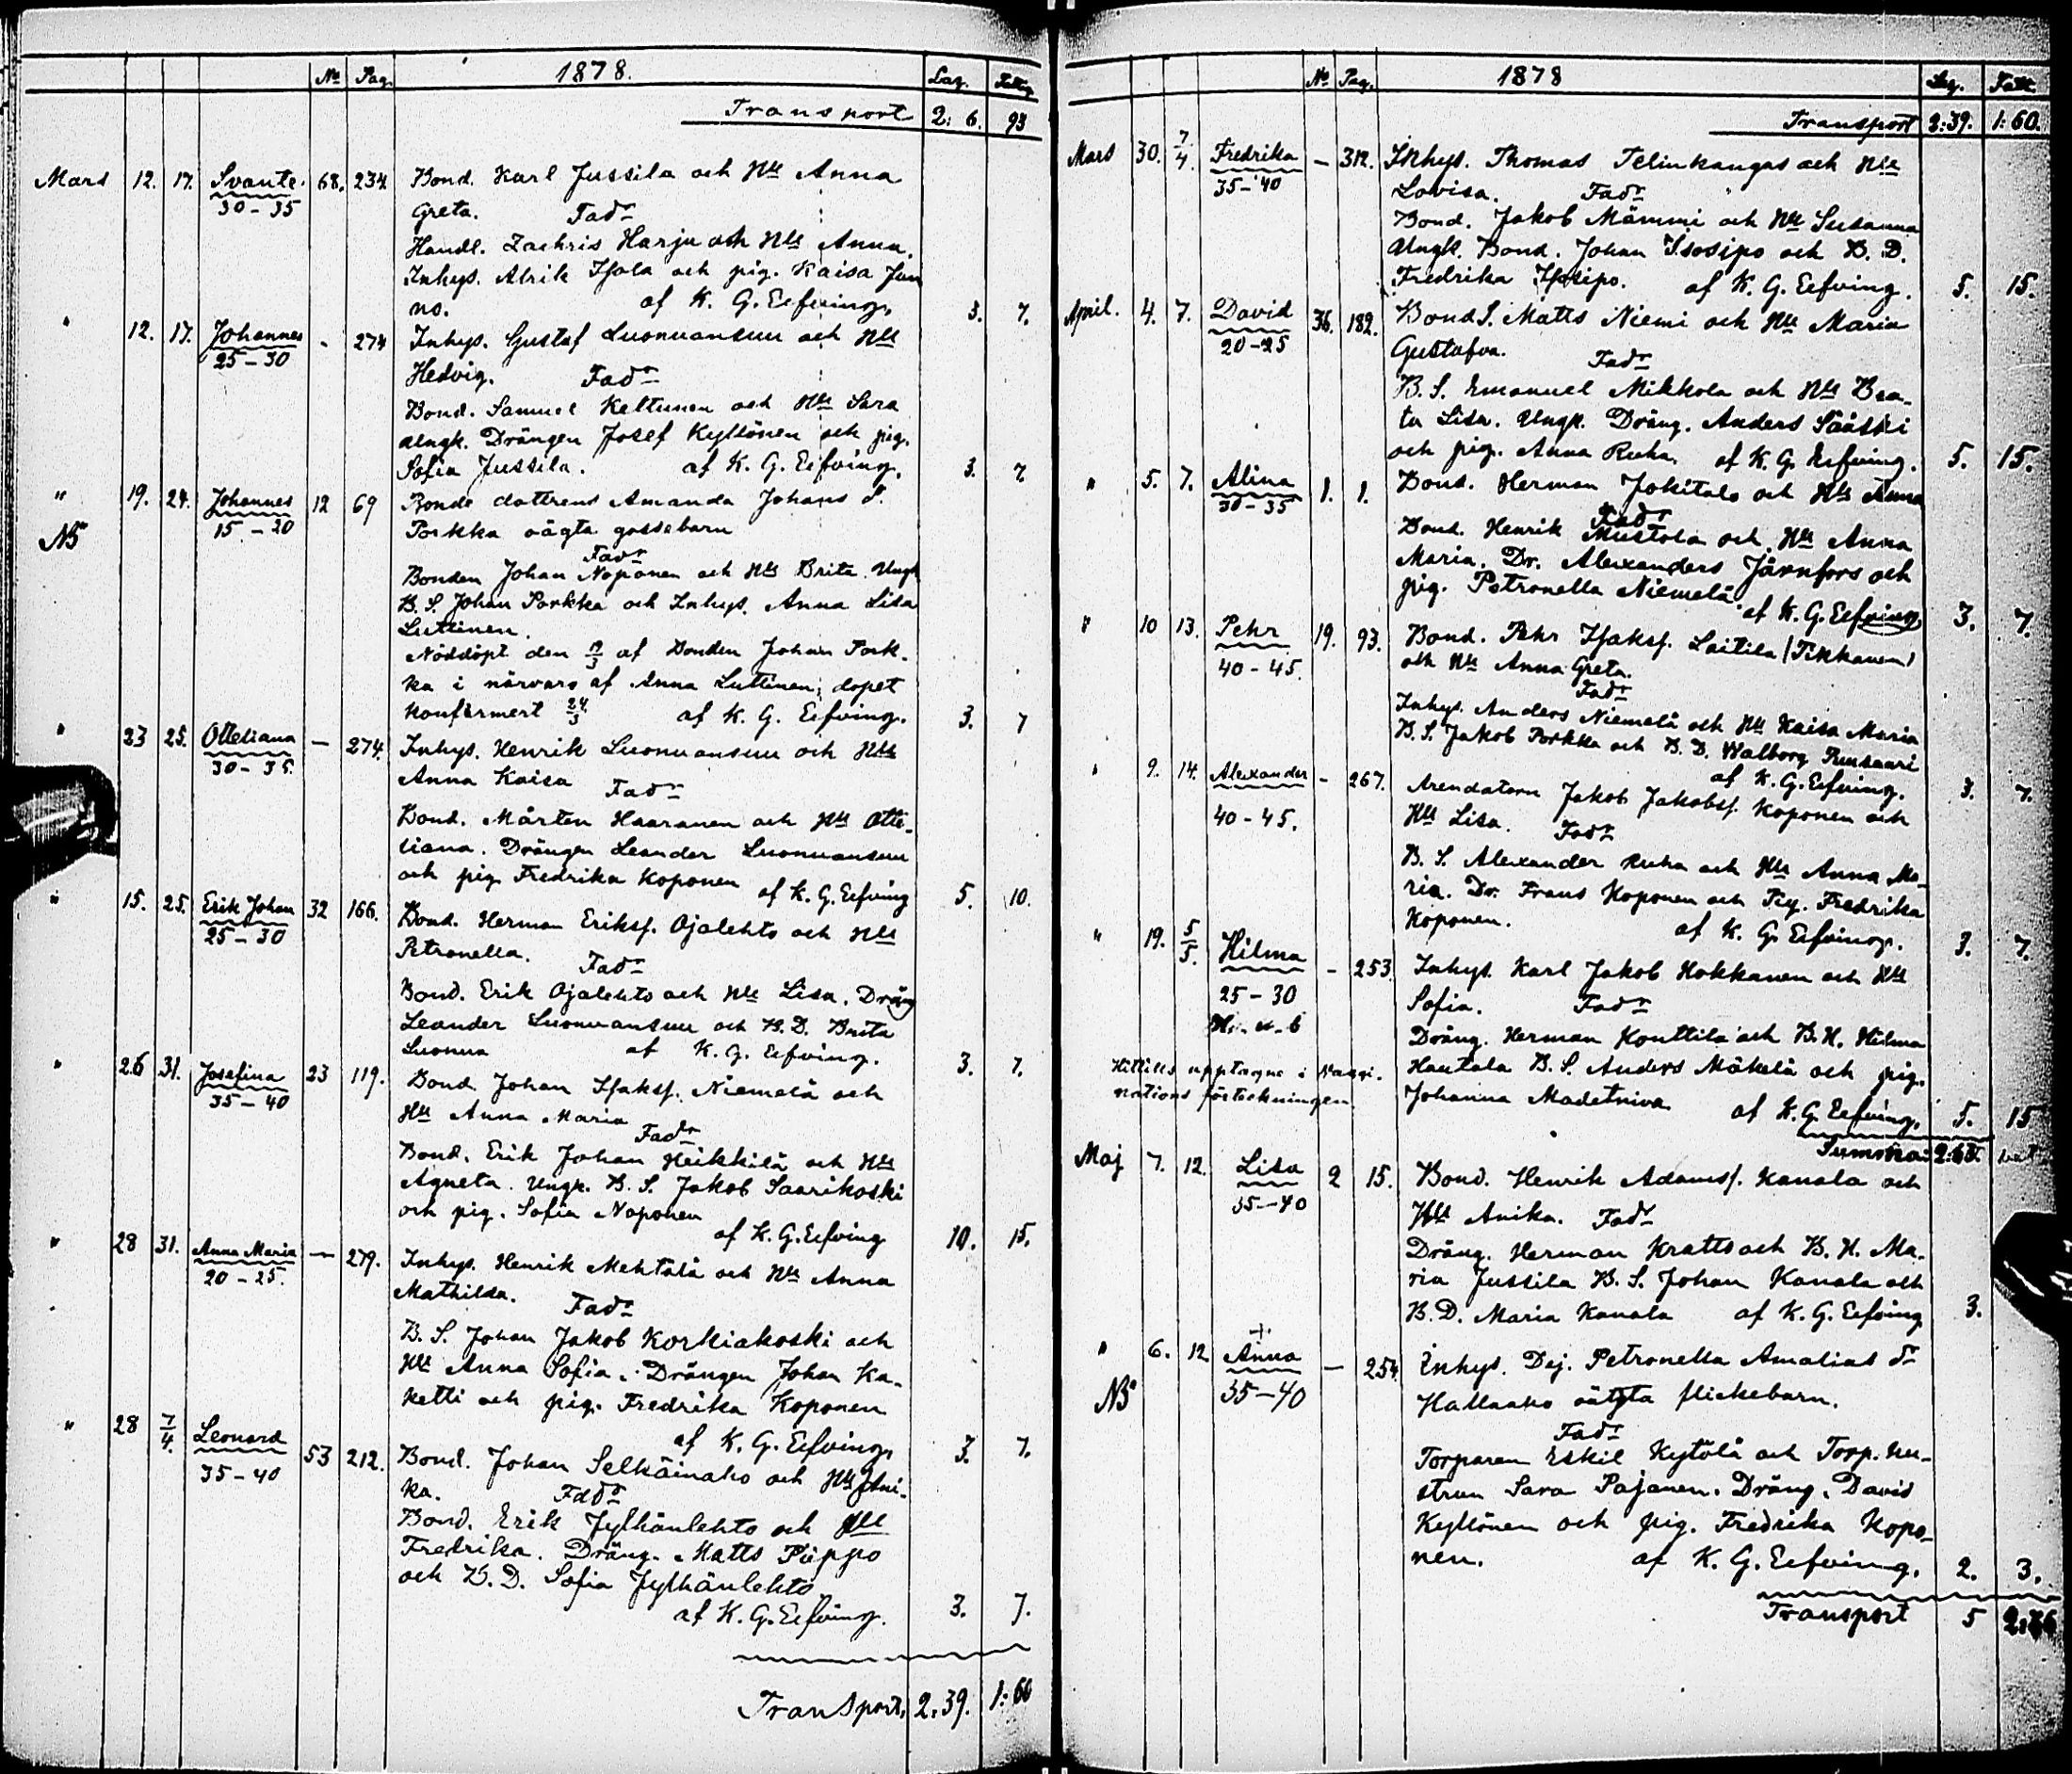 No Pag. 1878. Lag. Fattig
Transport 2: 6. 93
Mars 12. 17. Svante. 68. 234. Bond. Karl Jussila och Hu Anna
30-35 Greta. Fadr
Handl. Zachris Harju och Hu Anna.
Inhys. Alrik Isola och pig. Kaisa Jun
no. af K. G. Eefving. 3. 7.
" 12. 17. Johannes - 274 Inhys. Gustaf Luonuansuu och Hu
25-30 Hedvig. Fadr
Bond. Samuel Keltunen och Hu Sara
Ungk. Drängen Josef Kyllönen och pig.
Sofia Jussila. af K. G. Eefving. 3. 7
" 19. 24. Johannes 12 69 Bonde dottrens Amanda Johans d.
NB 15-20 Porkka oägta gossebarn
Fadr
Bonden Johan Noponen och Hu Brita. Ungk
B. S. Johan Porkka och Inhys. Anna Lisa
Luttinen.
Nöddöpt den 19/3 af Bonden Johan Pork-
ka i närvaro af Anna Luttinen; dopet
konfirmert 24/3 af K. G. Eefving. 3. 7
" 23 25. Otteliana - 274. Inhys. Henrik Luonuansuu och Hu
30-35. Anna Kaisa Fadr
Bond. Mårten Haaranen och Hu Otte-
liana. Drängen Leander Luonuansuu
och pig Fredrika Koponen af K. G. Eefving 5. 10.
" 15. 25. Erik Johan 32 166. Bond. Herman Eriksf. Ojalehto och Hu
25-30 Petronella. Fadr
Bond. Erik Ojalehto och Hu Lisa. Dräng
Leander Luonuansuu och B. D. Brita
Luonua af K. G. Eefving. 3. 7.
" 26 31. Josefina 23 119. Bond Johan Isaksf. Niemelä och
35-40 Hu Anna Maria Fadr
Bond. Erik Johan Heikkilä och Hu
Agneta. Ungk. B. S. Jakob Saarikoski
och pig. Sofia Noponen
af K. G. Eefving 10. 15.
" 28 31. Anna Maria - 279. Inhys. Henrik Mehtälä och Hu Anna
20-25. Mathilda. Fadr
B. S. Johan Jakob Korkiakoski och
Hu Anna Sofia. Drängen Johan Ka-
ketti och pig. Fredrika Koponen
af K. G. Eefving. 3. 7.
" 28 7/4. Leonard 53 212. Bond. Johan Selkäinaho och Hu Ani-
35-40 ka. Fadr
Bond. Erik Jylhänlehto och Hu
Fredrika. Dräng. Matts Piippo
och B. D. Sofia Jylhänlehto
af K. G. Eefving. 3. 7.
Transport, 2.39. 1:60
No Pag. 1878 Lag. Fatt
Transport 2:39. 1:60.
Mars 30. 7/4. Fredrika - 312. Inhys. Thomas Telinkangas och Hu
35-40 Lovisa. Fadr
Bond. Jakob Mämmi och Hu Susanna
Ungk. Bond. Johan Isosipo och B. D.
Fredrika Isosipo. af K. G. Eefving. 5. 15.
April. 4. 7. David 36. 182. Bond S. Matts Niemi och Hu Maria
20-25 Gustafva. Fadr
B. S. Emanuel Mikkola och Hu Bea-
ta Lisa. Ungk. Dräng. Anders Sääski
och pig. Anna Ruha. af K. G. Eefving. 5. 15.
" 5. 7. Alina 1. 1. Bond. Herman Jokitalo och Hu Anna
30-35 Fadr
Bond. Henrik Mustola och Hu Anna
Maria. Dr. Alexanders Järnfors och
pig. Petronella Niemelä.
af K. G. Eefving 3. 7.
" 10 13. Pehr 19. 93. Bond. Pehr Isaksf. Laitila (Tikkanen)
40-45. och Hu Anna Greta.
Fadr
Inhys. Anders Niemelä och Hu Kaisa Maria
B. S. Jakob Porkka och B. D. Walborg
af K. G. Eefving. 3. 7.
" 9. 14. Alexander - 267. Arendatorn Jakob Jakobsf. Koponen och
40-45. Hu Lisa. Fadr
B. S. Alexander Ruha och Hu Anna Ma-
ria. Dr. Frans Koponen och Pig. Fredrika
Koponen. af K. G. Eefving. 3. 7.
" 19. 5/5. Hilma - 253. Inhys. Karl Jakob Hokkanen och Hu
25-30 Sofia. Fadr
Dräng. Herman Konttila och B. H. Hilma
Hittills upptagne i Vacci- Hautala B. S. Anders Mäkelä och pig.
nations förteckningen Johanna Madetniva.
af K. G. Eefving. 5. 15
Summa: 2:63.
Maj 7. 12. Lisa 2 15. Bond. Henrik Adamsf. Kanala och
35-40 Hu Anika. Fadr
Dräng. Herman Kratts och B. H. Ma-
ria Jussila B. S. Johan Kanala och
B. D. Maria Kanala af K. G. Eefving 3.
" 6. 12 Anna - 254. Inhys. Dej. Petronella Amalias dr
NB 35-40 Hallaaho oägta flickebarn.
Fadr
Torparen Eskil Kytölä och Torp. hu-
strun Sara Pajanen. Dräng. David
Kyllönen och pig. Fredrika Kopo-
nen. af K. G. Eefving. 2. 3.
Transport 5